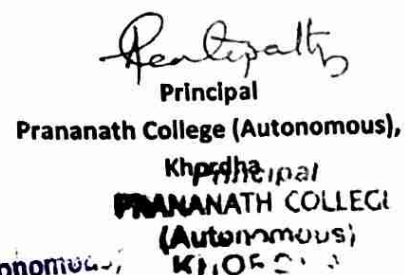 Principal
Prananath College (Autonomous),
Khordha
Principal
PRANANATH COLLEGE
(Autonomous)